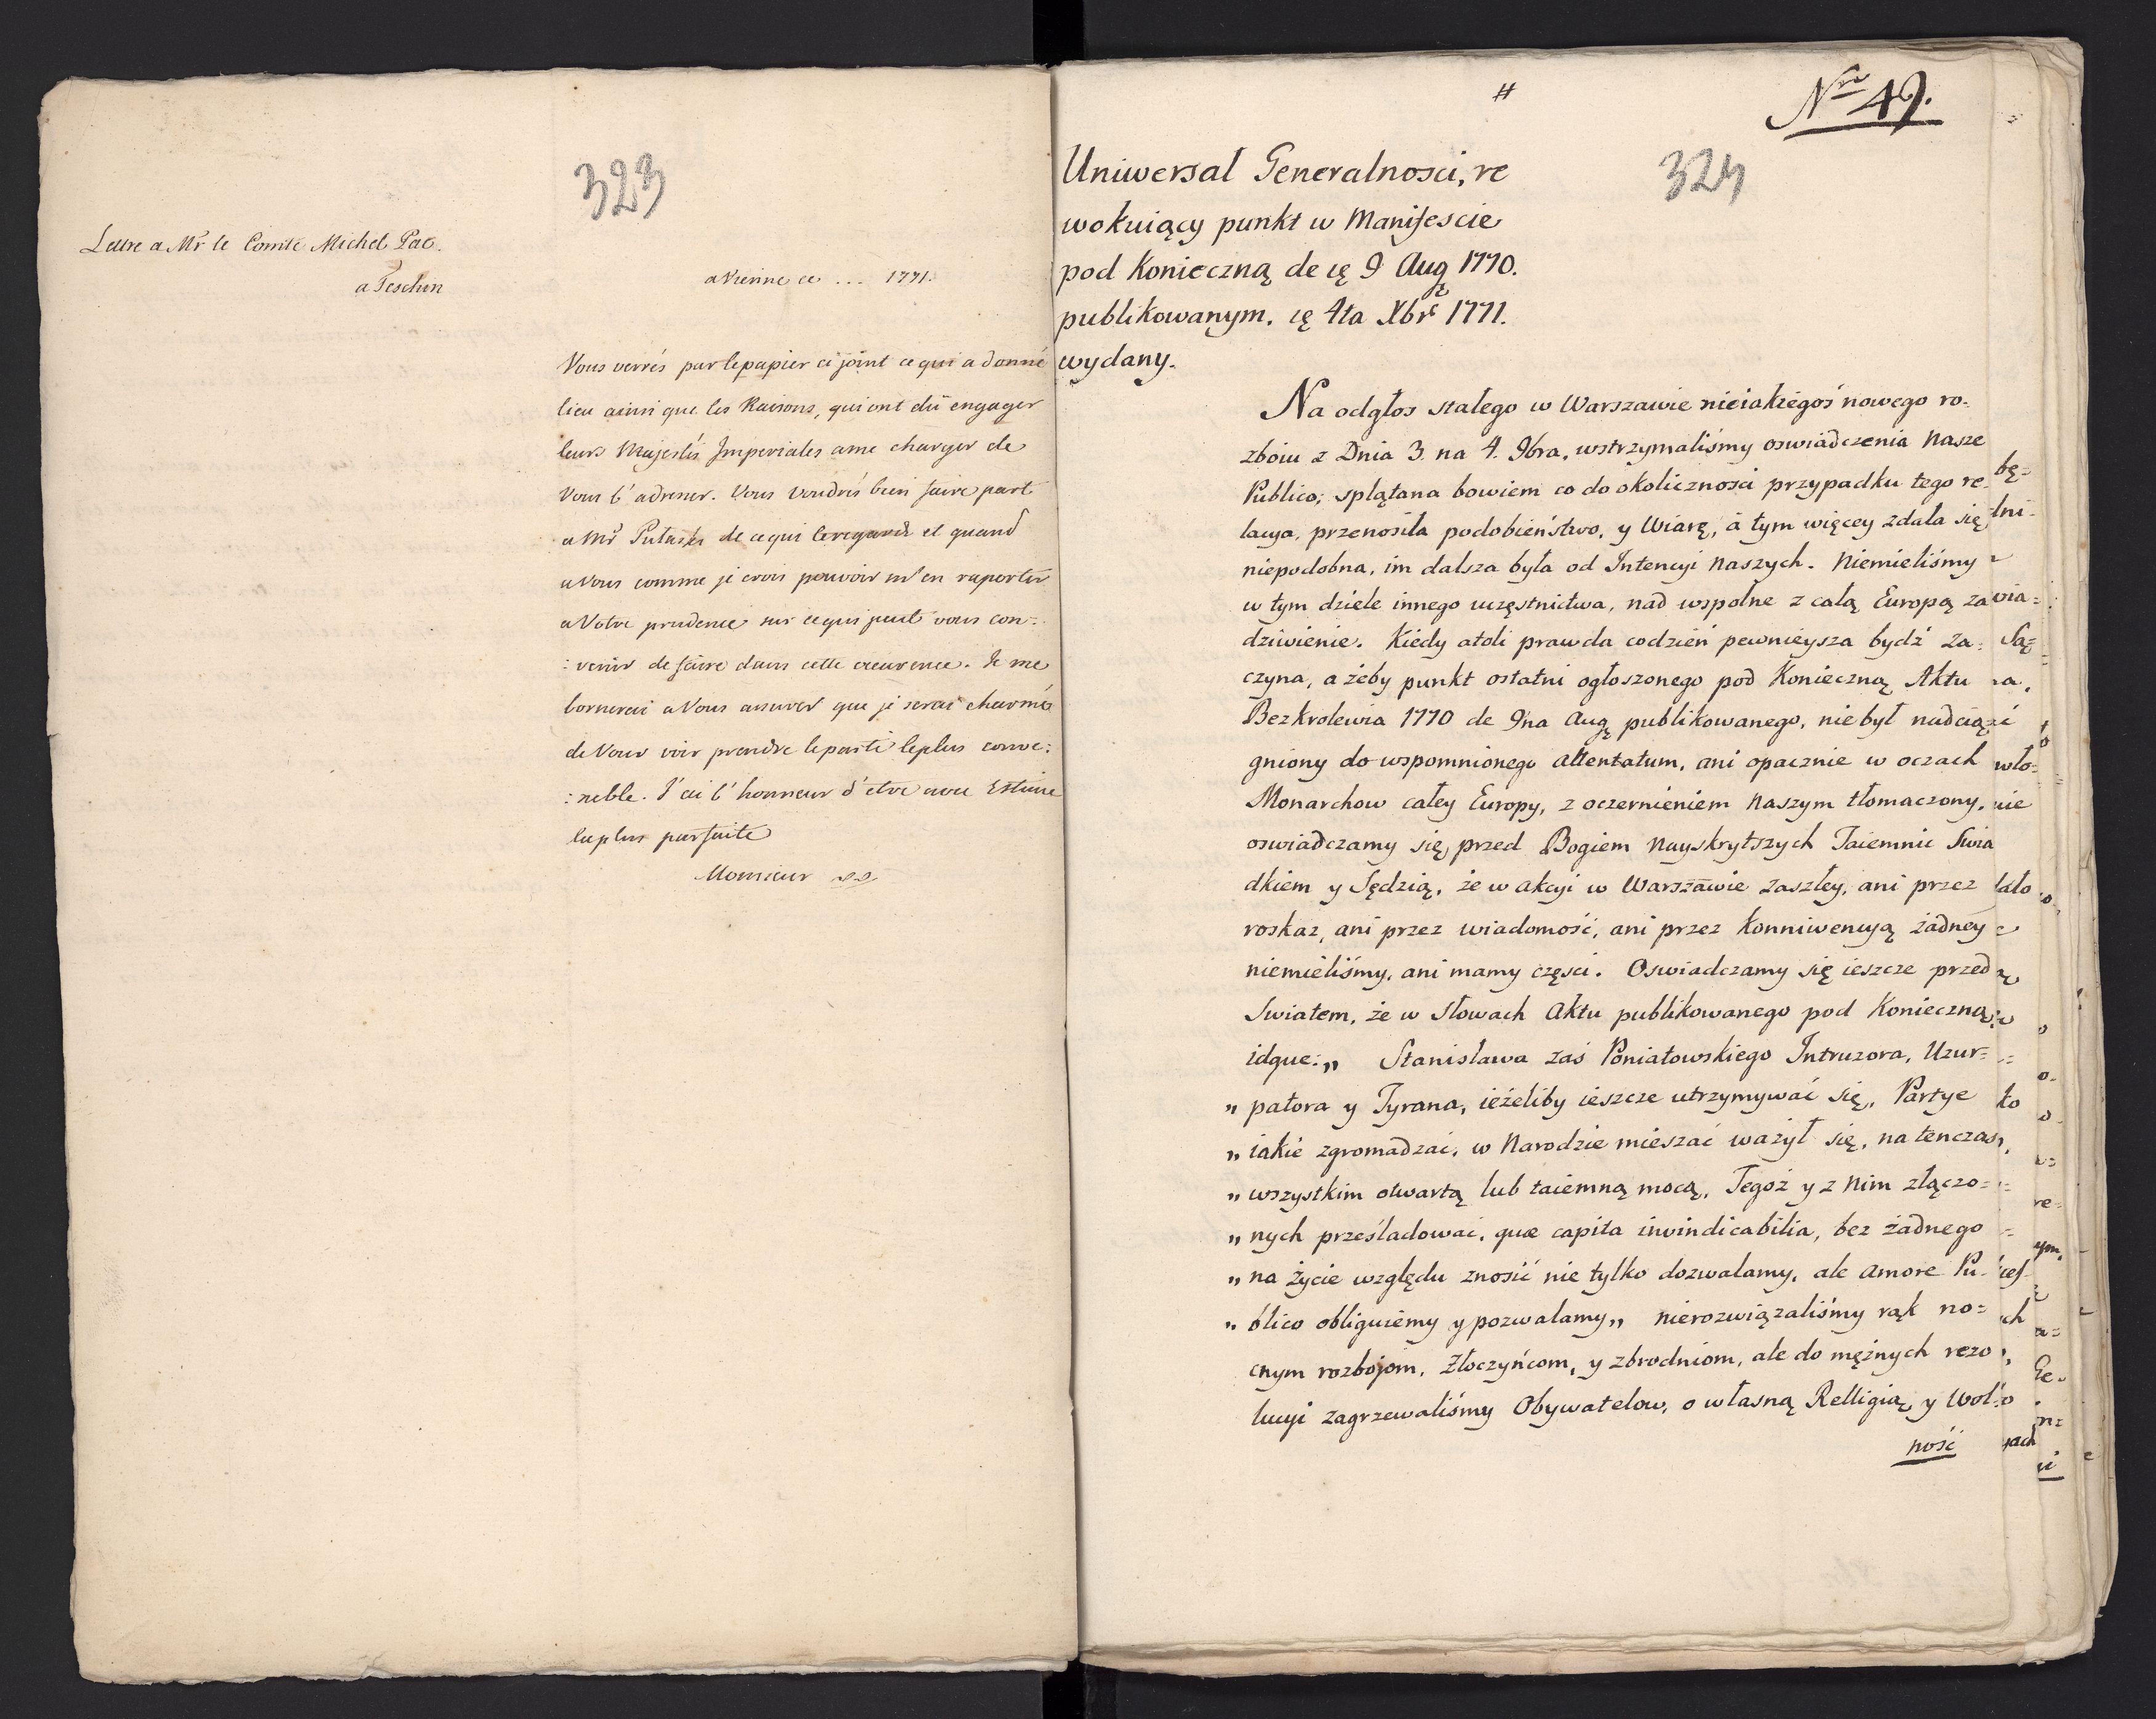 323
Lettre a Mr le Comte Michel Pac.
a Teschin
a Vienne ce ... 1771.
Vous verrés par le papier ci joint ce qui a donné
lieu ainsi que les Raisons, qui ont dû engager
leurs Majestés Imperiales a me charger de
vous l'adresser. Vous voudrés bien faire part
a Mr Pulaski de ce qui le regarde et quand
a Vous comme je crois pouvoir m'en raporter
a Votre prudence sur ce qui peut vous con=
:venir de faire dans cette occurence. Je me
bornerai a Vous assurer que je serai charmés
de Vous voir prendre le parti le plus conve:
:nable. J'ai l'honneur d'etre avec Estime
la plus parfaite
Monsieur
#
Nro 49.
324
Uniwersał Generalnosci, re
wokuiący punkt w Manifescie
pod Konieczną de ię 9 Aug 1770.
publikowanym. ię 4ta Xbrę 1771.
wydany.
Na odgłos stałego w Warszawie nieiakiegoś nowego ro=
zboiu z Dnia 3. na 4. 9bra, wstrzymaliśmy oswiadczenia Nasze
Publico; splątana bowiem co do okoliczności przypadku tego re=
lacya, przenosiła podobieństwo, y Wiarę, á tym więcey zdała się
niepodobna, im dalsza była od Intencyi Naszych. Niemieliśmy
w tym dziele innego uczęstnictwa, nad wspolne z całą Europą za
dziwienie. Kiedy atoli prawda codzień pewnieysza bydź za=
czyna, a żeby punkt ostatni ogłoszonego pod Konieczną Aktu
Bezkrolewia 1770 de 9na Aug publikowanego, nie był nadcią
gniony do wspomnionego Attentatum, ani opacznie w oczach
Monarchow całey Europy, z oczernieniem Naszym tłomaczony,
oswiadczamy się przed Bogiem Nayskrytszych Taiemnic Swia
dkiem y Sędzią, że w akcyi w Warszawie zaszłey, ani przez
roskaz, ani przez wiadomość, ani przez konniwencyą żadney
niemieliśmy, ani mamy części. Oswiadczamy się ieszcze przed
Swiatem, że w Słowach Aktu publikowanego pod Konieczną
idque:„ Stanisława zaś Poniatowskiego Intruzora, Uzur=
„ patora y Tyrana, ieżeliby ieszcze utrzymywać się, Partye
„ iakie zgromadzać, w Narodzie mieszać ważył się, na tenczas
„ wszystkim otwartą lub taiemną mocą, Tegoż y z Nim złączo=
„ nych prześladować, quæ capita invindicabilia, bez żadnego
„ na życie względu znosić nie tylko dozwalamy, ale Amore Pu=
„ blico obliguiemy y pozwalamy„ nierozwiązaliśmy rąk no=
cnym rozbojom, Złoczyńcom, y zbrodniom, ale do mężnych rezo
lucyi zagrzewaliśmy Obywatelow, o własną Relligią y Wol
ność